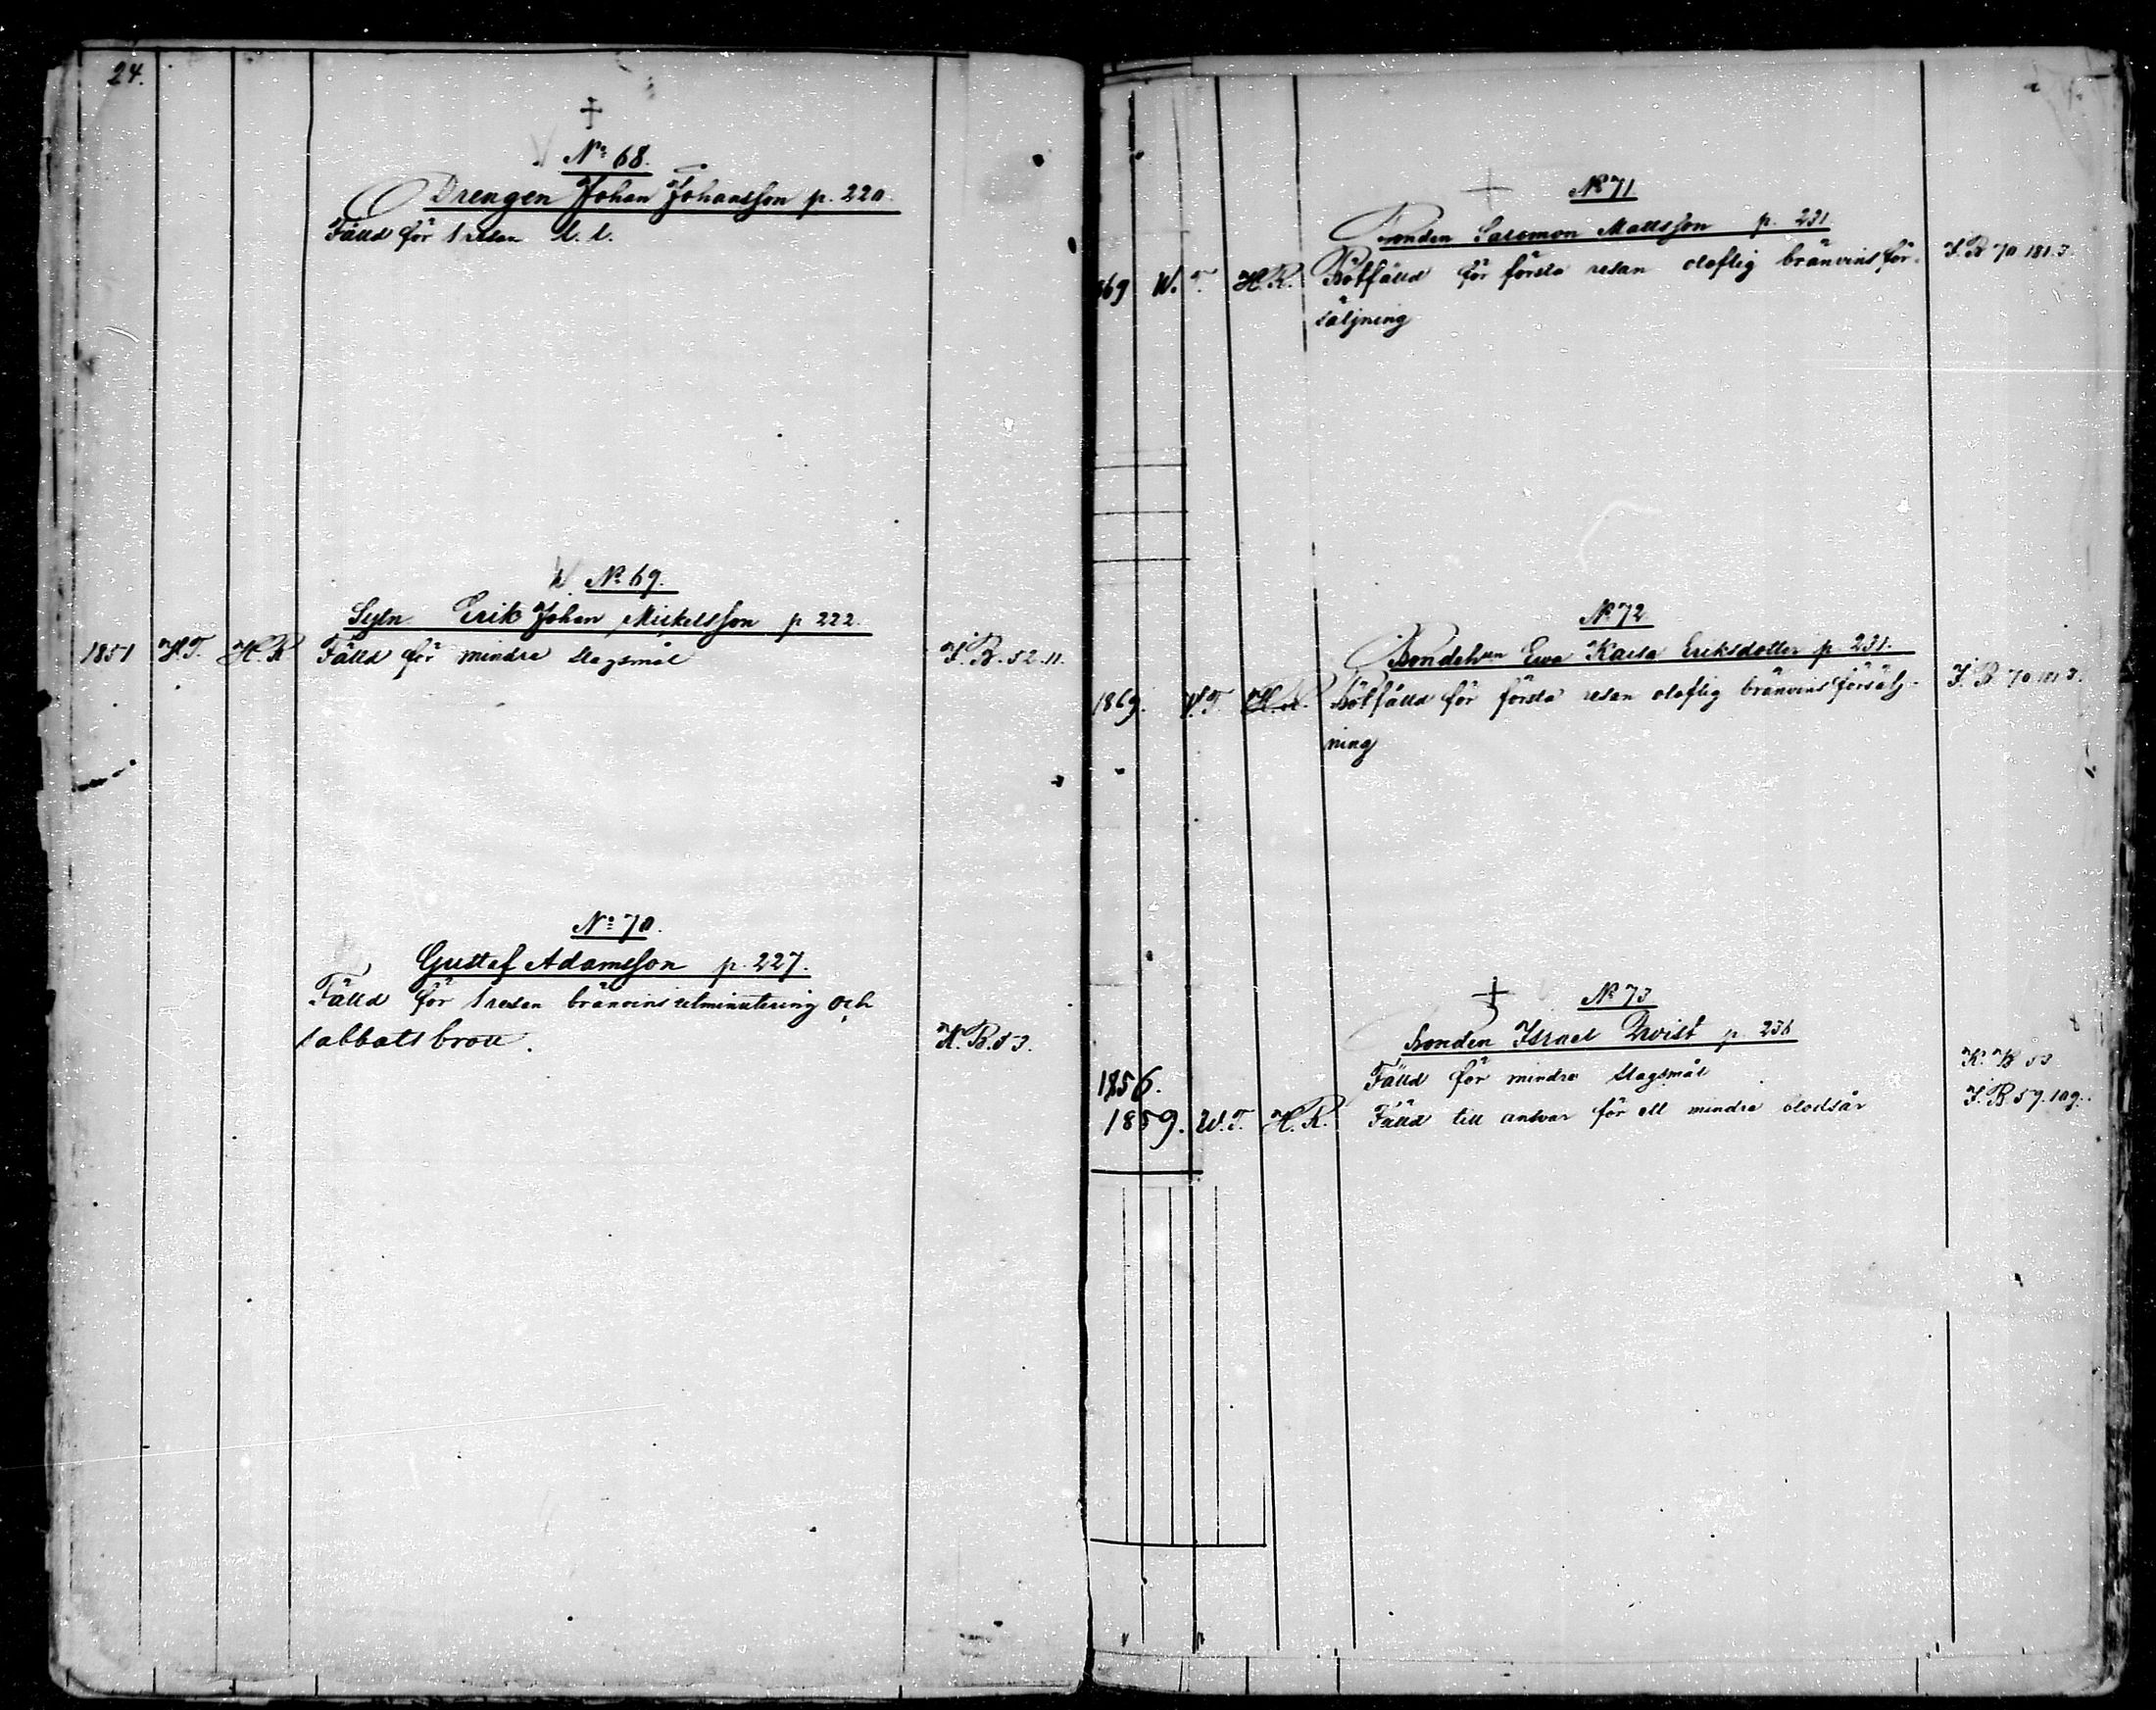 24.
№ 68.
Drengen Johan Johansson p. 220.
Fälld för 1 resan l. l.
№ 69.
Sytn Erik Johan Mickelsson p 222.
1851 H.T. H.R. Fälld för mindre slagsmål J.B. 52.11.
№ 70.
Gustaf Adamsson p. 227.
Fälld för 1 resan bränvins utminutering och
sabbatsbrott. K.B. 53.
№ 71
Bonden Salomon Mattsson p. 231.
869 W.T. H.R. Bötfälld för första resan olaflig bränvins för- J.B 70.181.3.
säljning
№ 72
Bondeh:n Ewa Kaisa Eriksdotter p. 231.
1869. V.T. H.R. Bötfälld för första resan olaflig bränvins försälj- J.B 70.181.3.
ning
№ 73
Bonden Israel Qvist p. 236
1856. Fälld för mindre slagsmål K.B 53
1859. W.T. H.R. Fälld till ansvar för ett mindre blodsår J.B. 59.109.